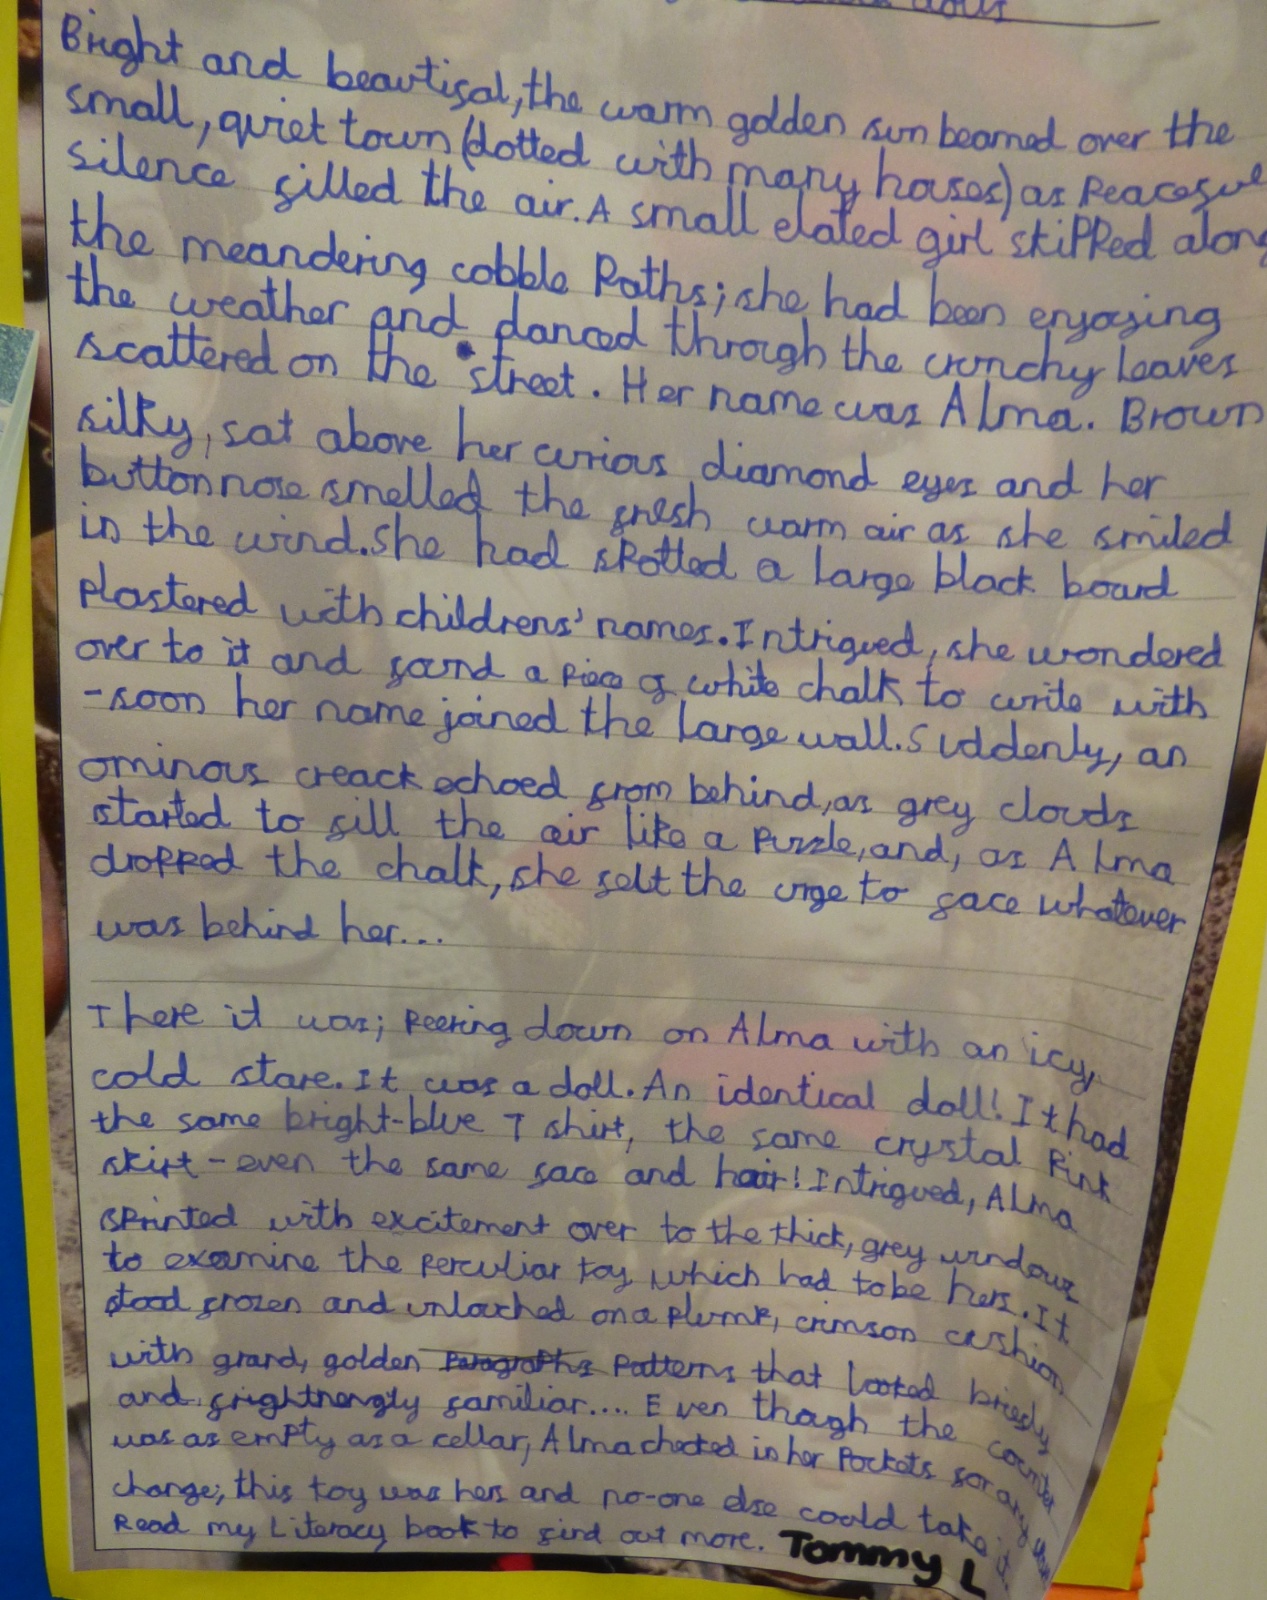 dolls
Bright and beautiful, the warm golden sun beamed over the
small, quiet town (dotted with many houses) as peaceful
silence filled the air. A small elated girl skipped along
the meandering cobble paths; she had been enjoying
the weather and danced through the crunchy leaves
scattered on the street. Her name was Alma. Brown
silky, sat above her curious diamond eyes and her
button nose smelled the fresh warm air as she smiled
in the wind. She had spotted a large black board
plastered with childrens' names. Intrigued, she wondered
over to it and found a piece of white chalk to write with
- soon her name joined the large wall. Suddenly, an
ominous creack echoed from behind, as grey clouds
started to fill the air like a puzzle, and, as Alma
dropped the chalk, she felt the urge to face whatever
was behind her...
There it was; peering down on Alma with an icy,
cold stare. It was a doll. An identical doll! It had
the same bright-blue T shirt, the same crystal pink
skirt - even the same face and hair! Intrigued, Alma
sprinted with excitement over to the thick, grey windows
to examine the perculiar toy, which had to be hers. It
stood frozen and untouched on a plump, crimson cushion
with grand, golden patterns that looked briefly
and frightnengly familiar.... Even though the counter
was as empty as a cellar, Alma checked in her pockets for any
change; this toy was hers and no-one else could take it.
Read my Literacy book to find out more. Tommy L